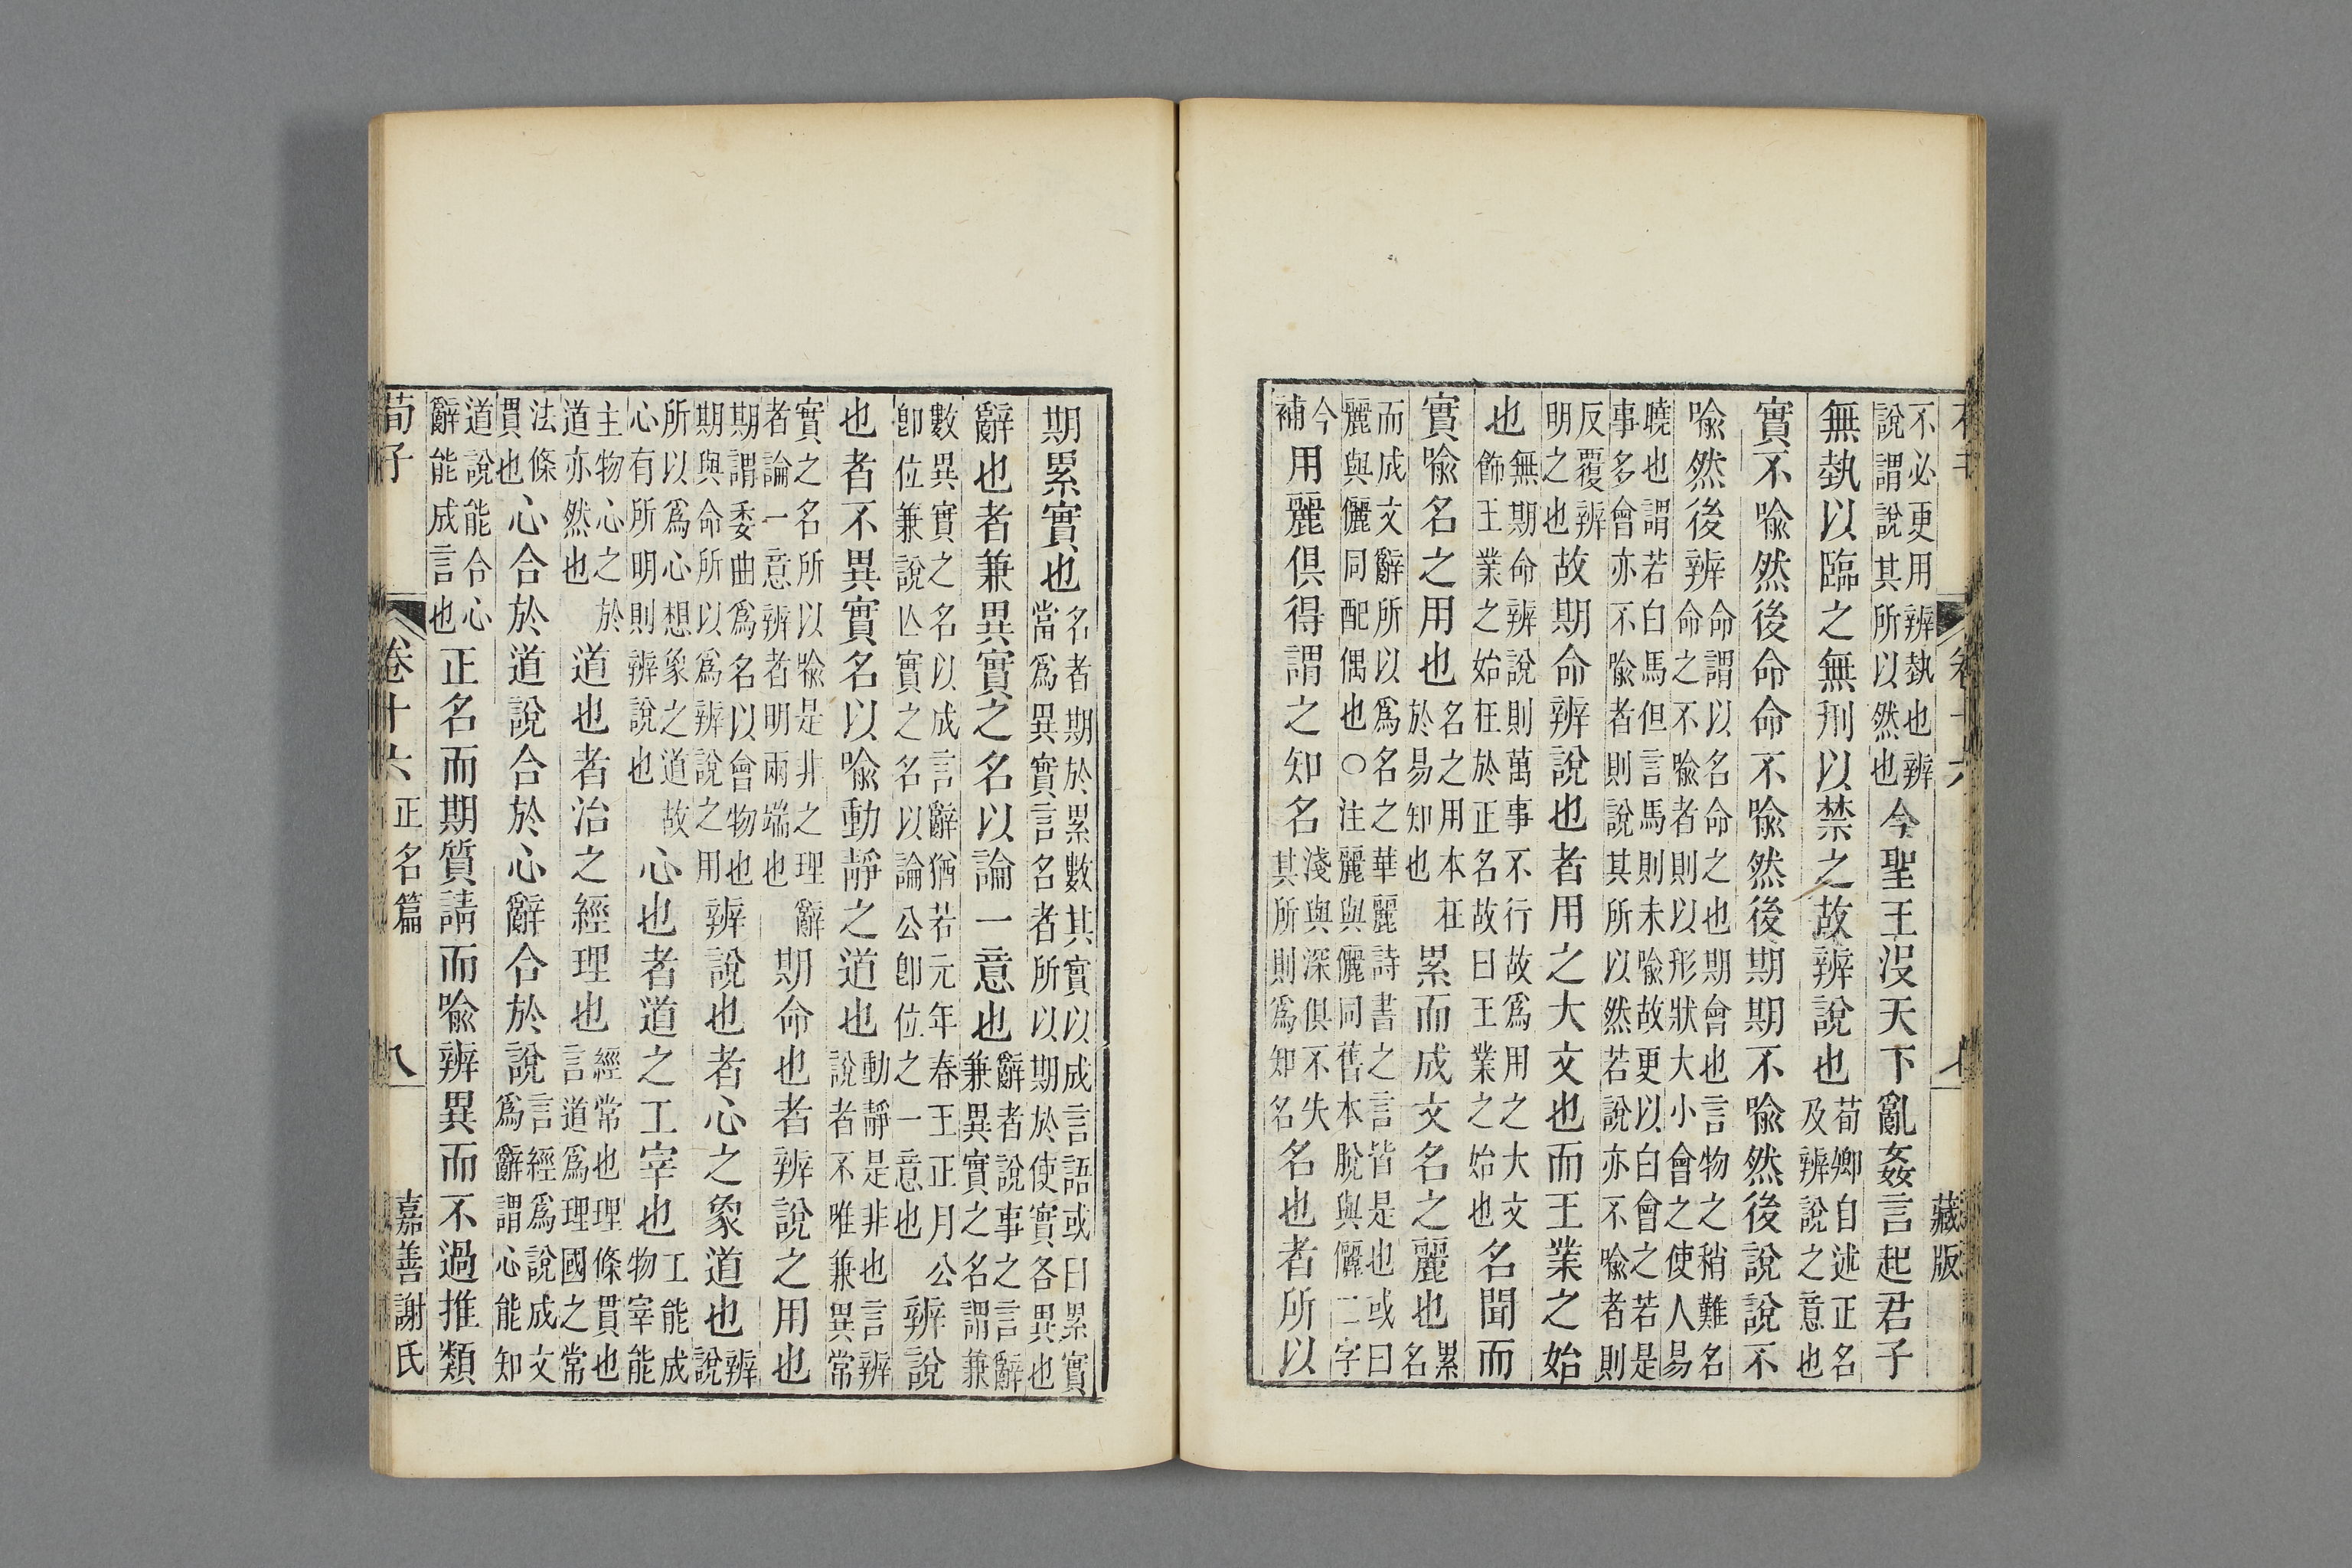 不必更用辨埶也辨
說謂說其所以然也
今聖王沒天下亂姦言起君子
無埶以臨之無刑以禁之故辨說也
荀卿自述正名
及辨說之意也
實不喻然後命命不喻然後期期不喻然後說說不
喻然後辨
命謂以名命之也期會也言物之稍難名
命之不喻者則以形狀大小會之使人易
曉也謂若白馬但言馬則未喻故更以白會之若是
事多會亦不喻者則說其所以然若說亦不喻者則
反覆辨
明之也
故期命辨說也者用之大文也而王業之始
也
無期命辨說則萬事不行故爲用之大文
飾王業之始在於正名故曰王業之始也
名聞而
實喻名之用也
名之用本在
於易知也
累而成文名之麗也
累名
而成文辭所以爲名之華麗詩書之言皆是也或曰
麗與儷同配偶也○注麗與儷同舊本脫與儷二字
今
補
用麗俱得謂之知名
淺與深俱不失
其所則爲知名
名也者所以
藏版
期累實也
名者期於累數其實以成言語或曰累實
當爲異實言名者所以期於使實各異也
辭也者兼異實之名以論一意也
辭者說事之言辭
兼異實之名謂兼
數異實之名以成言辭猶若元年春王正月公
卽位兼說亾實之名以論公卽位之一意也
辨說
也者不異實名以喻動靜之道也
動靜是非也言辨
說者不唯兼異常
實之名所以喻是非之理辭
者論一意辨者明兩端也
期命也者辨說之用也
期謂委曲爲名以會物也
期與命所以爲辨說之用
辨說也者心之象道也
辨
說
所以爲心想象之道故
心有所明則辨說也
心也者道之工宰也
工能成
物宰能
主物心之於
道亦然也
道也者治之經理也
經常也理條貫也
言道爲理國之常
法條
貫也
心合於道說合於心辭合於說
言經爲說成文
爲辭謂心能知
道說能合心
辭能成言也
正名而期質請而喻辨異而不過推類
荀子
卷十六
正名篇
八
嘉善謝氏